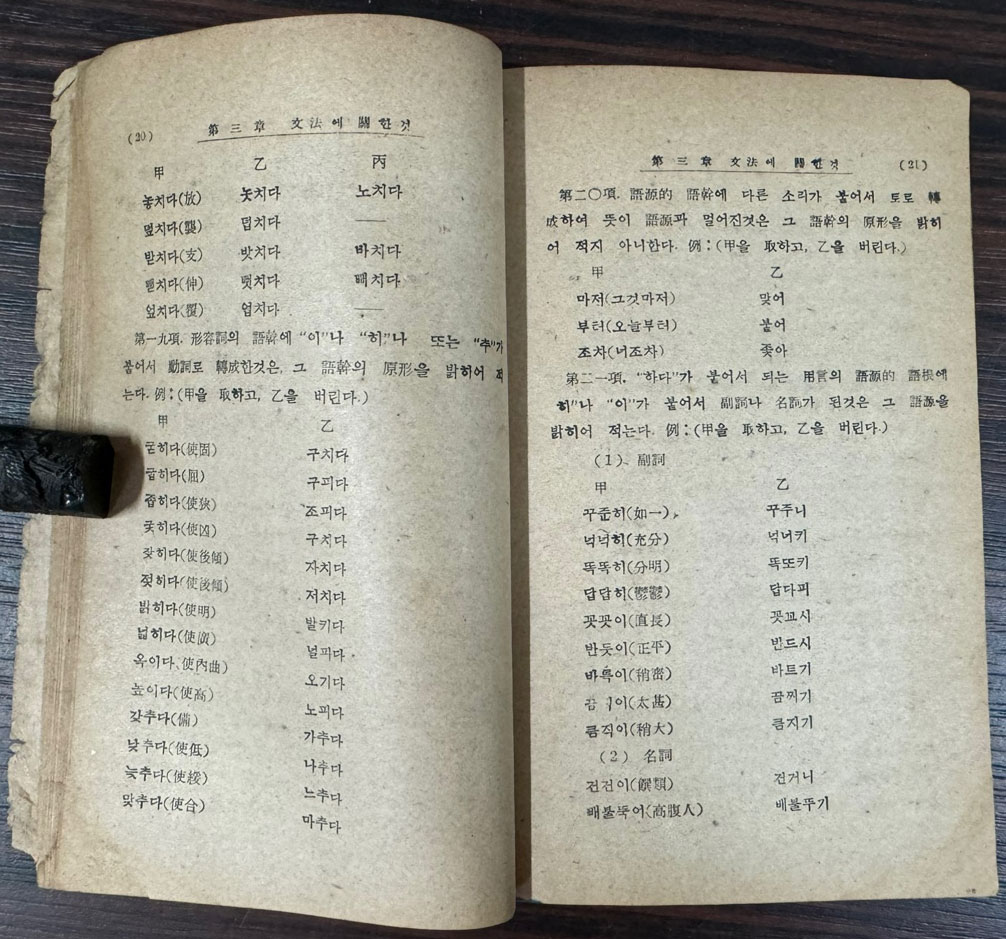 (20) 第三章 文法에 關한것
甲 乙 丙
놓치다(放) 놋치다 노치다
덮치다(襲) 덥치다 ——
받치다(支) 밧치다 바치다
뻗치다(伸) 뻣치다 뻐치다
엎치다(覆) 업치다 ——
第一九項. 形容詞의 語幹에 “이”나 “히”나 또는 “추”가
붙어서 動詞로 轉成한것은, 그 語幹의 原形을 밝히어 적
는다. 例:(甲을 取하고, 乙을 버린다.)
甲 乙
굳히다(使固) 구치다
굽히다(屈) 구피다
좁히다(使狹) 조피다
궂히다(使凶) 구치다
잦히다(使後傾) 자치다
젖히다(使後傾) 저치다
밝히다(使明) 발키다
넓히다(使廣) 널피다
옥이다(使內曲) 오기다
높이다(使高) 노피다
갖추다(備) 가추다
낮추다(使低) 나추다
늦추다(使緩) 느추다
맞추다(使合) 마추다
第三章 文法에 關한것 (21)
第二〇項. 語源的 語幹에 다른 소리가 붙어서 토로 轉
成하여 뜻이 語源과 멀어진것은 그 語幹의 原形을 밝히
어 적지 아니한다. 例:(甲을 取하고, 乙을 버린다.)
甲 乙
마저(그것마저) 맞어
부터(오늘부터) 붙어
조차(너조차) 좇아
第二一項. “하다”가 붙어서 되는 用言의 語源的 語根에
히”나 “이”가 붙어서 副詞나 名詞가 된것은 그 語源을
밝히어 적는다. 例:(甲을 取하고, 乙을 버린다.)
(1) 副詞
甲 乙
꾸준히(如一) 꾸주니
넉넉히(充分) 넉너키
똑똑히(分明) 똑또키
답답히(鬱鬱) 답다피
꼿꼿이(直長) 꼿꼬시
반듯이(正平) 반드시
바특이(稍密) 바트기
(太甚) 끔찌기
큼직이(稍大) 큼지기
(2) 名詞
건건이(饌類) 건거니
배불뚝이(高腹人) 배불뚜기